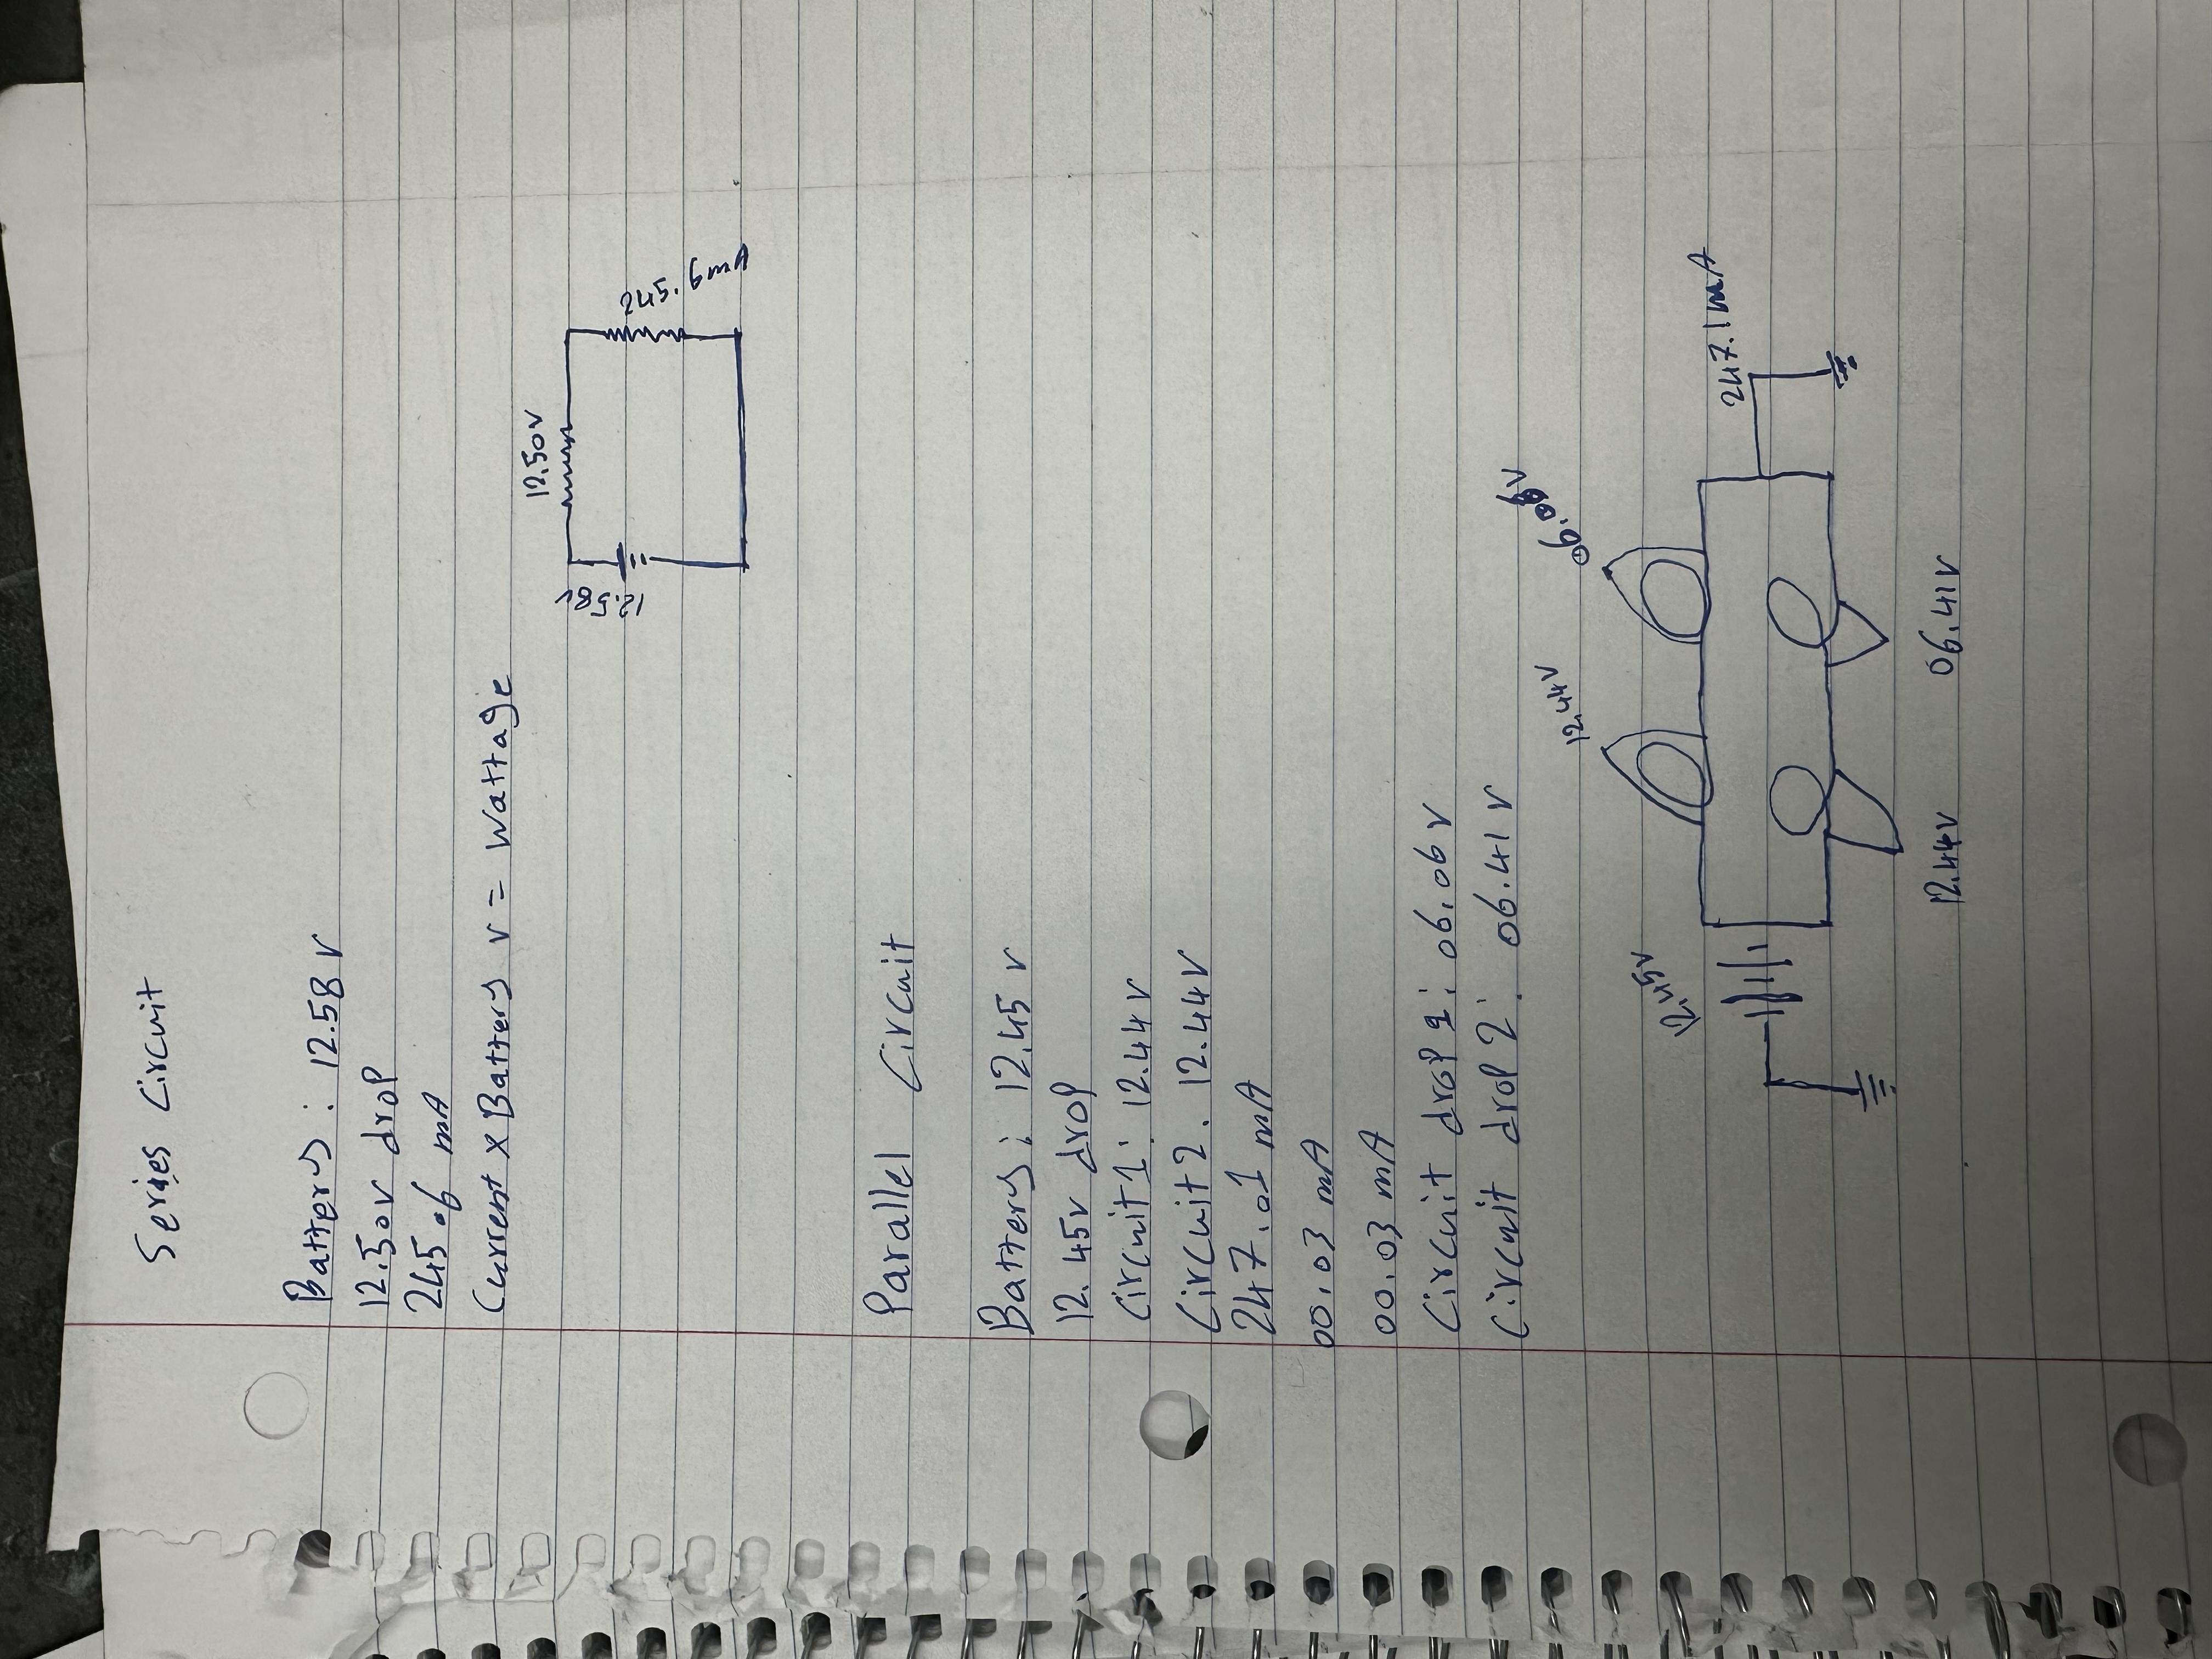 Series Circuit
Battery: 12.58 V
12.50v drop
245.6 mA
Current x Battery v = Wattage
12.50V
12.58v
245.6mA
Parallel Circuit
Battery: 12.45 v
12.45v drop
Circuit 1: 12.44V
Circuit 2. 12.44V
247.01 mA
00.03 mA
00.03 mA
Circuit drop 1: 06.06 V
Circuit drop 2: 06.41 V
12.45V
12.44V
247.1mA
12.44V
06.41V